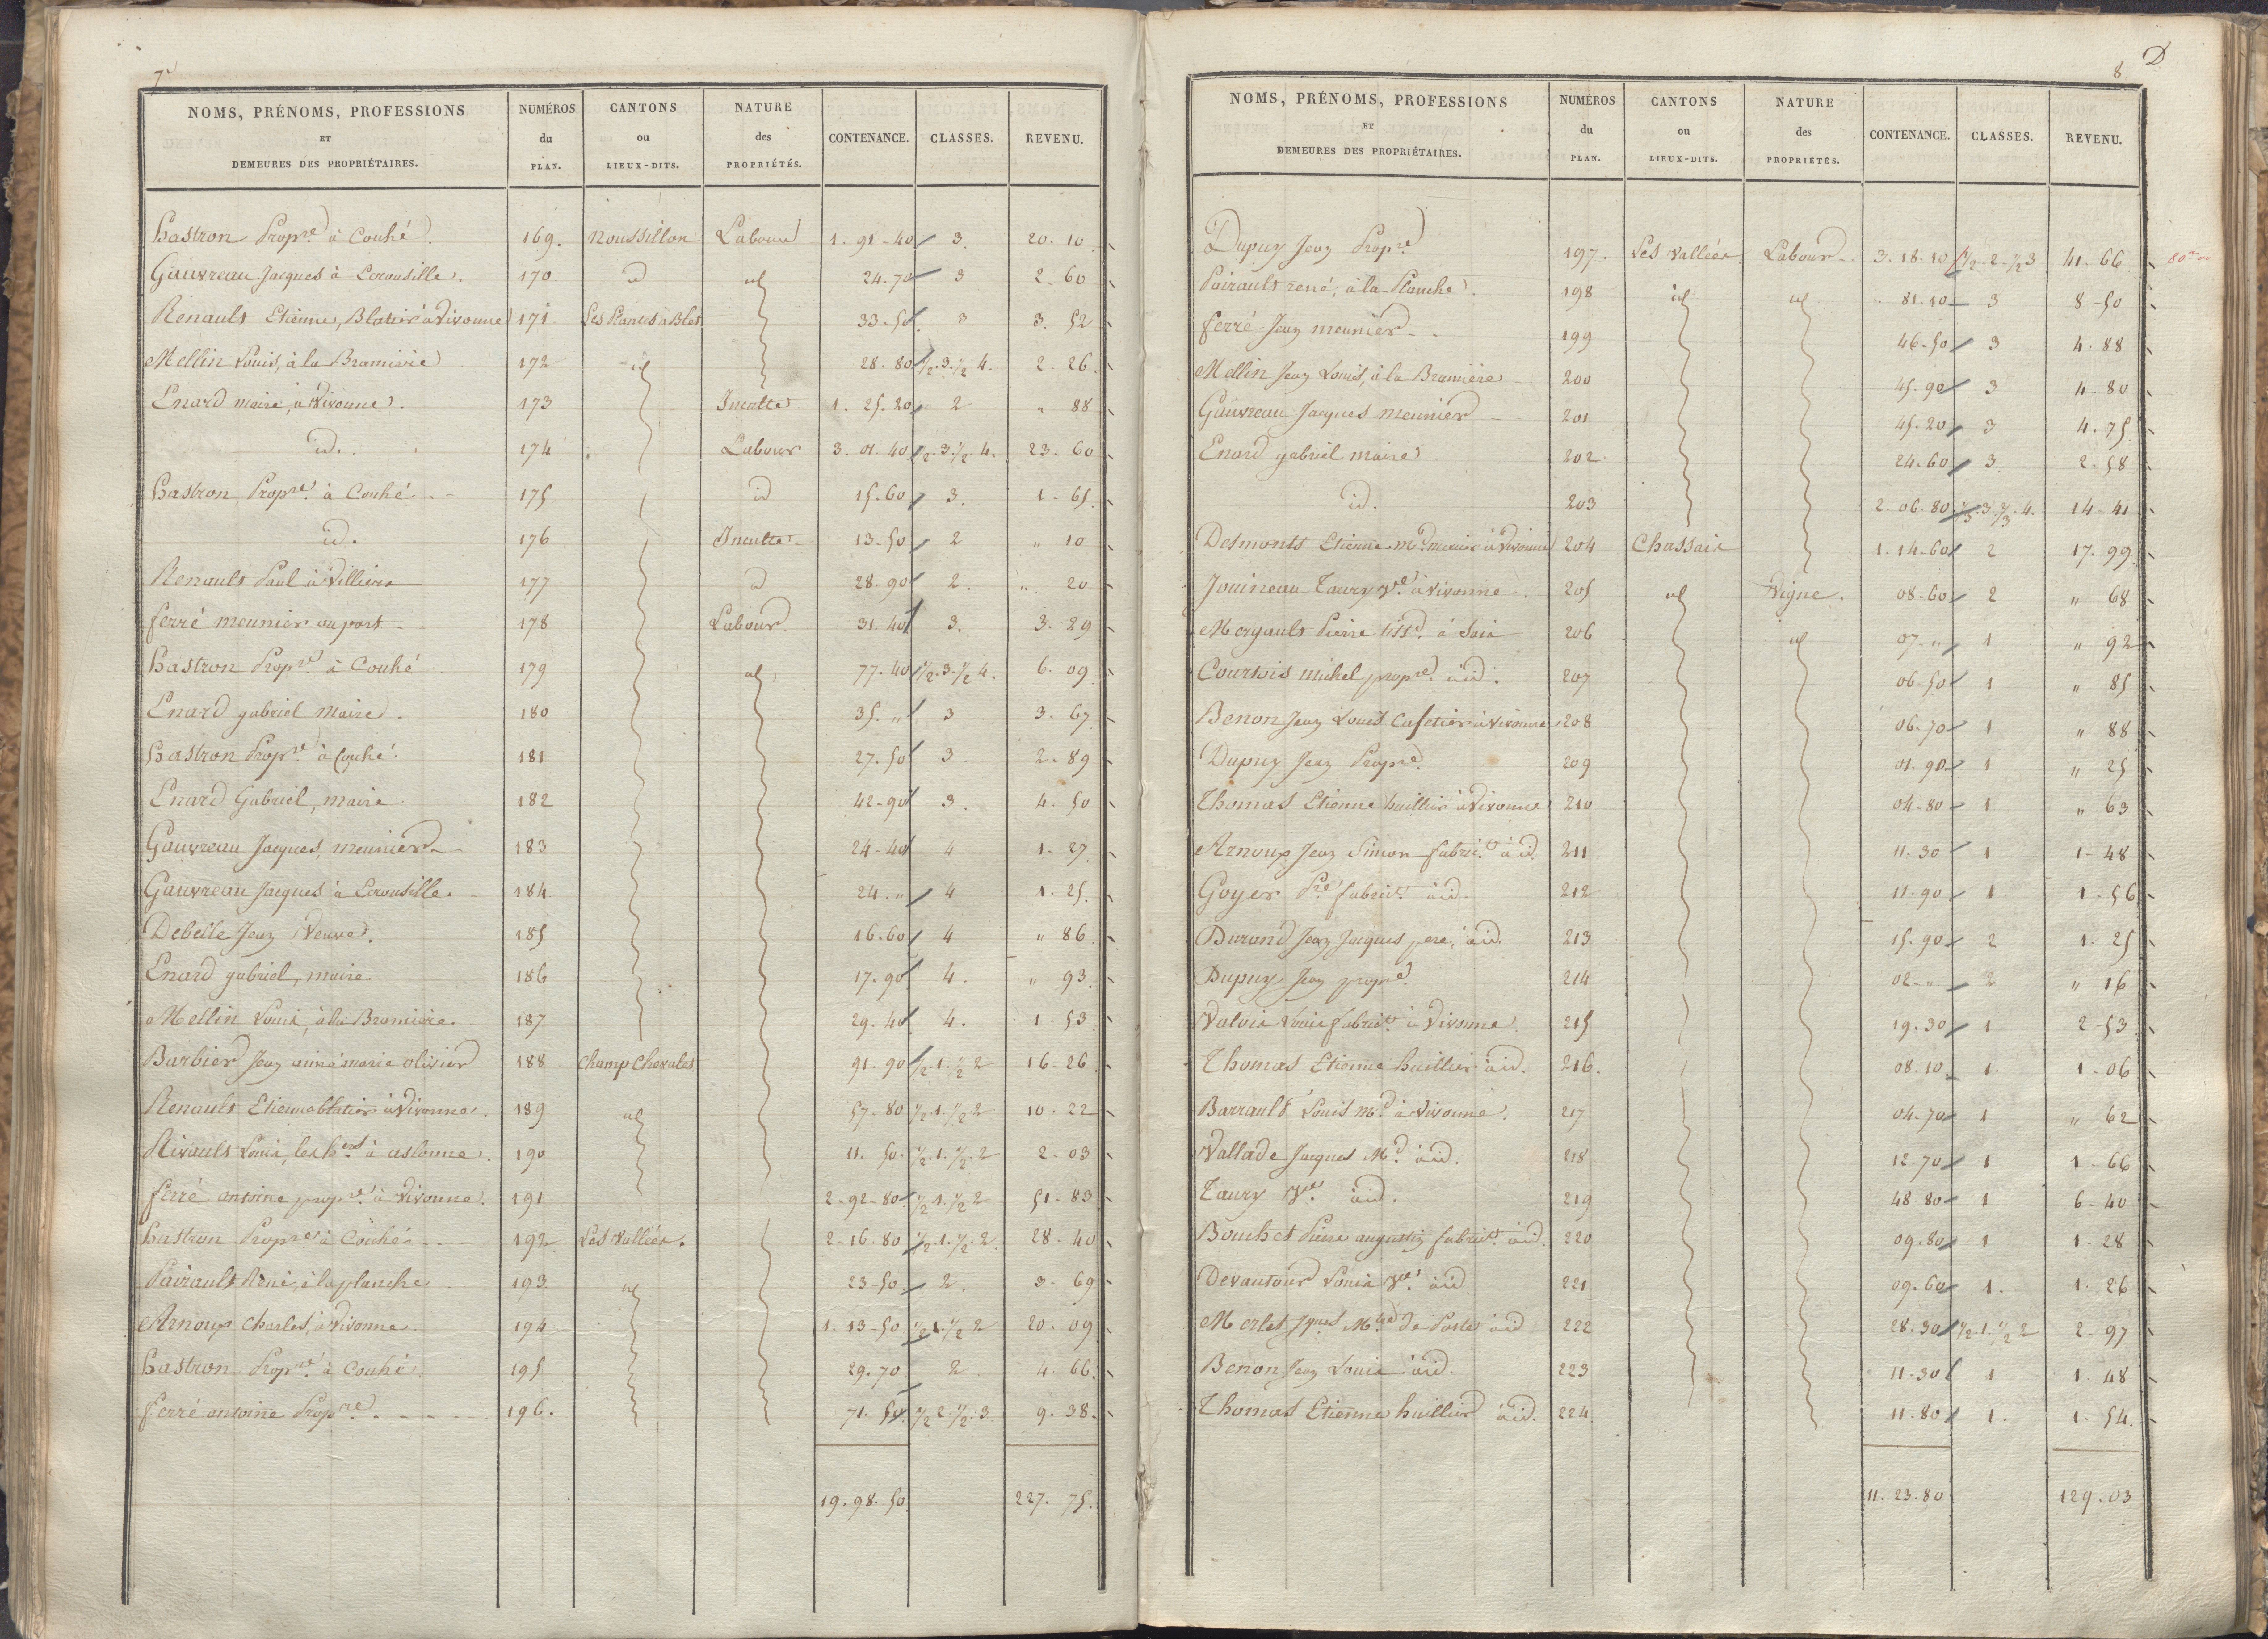 7
NOMS, PRÉNOMS, PROFESSIONS ET DEMEURES DES PROPRIÉTAIRES. NUMÉROS du PLAN. CANTONS ou LIEUX-DITS. NATURE des PROPRIÉTÉS. CONTENANCE. CLASSES. REVENU.
hastron Propre à Couhé. 169. noussillon Labour 1. 91-40 3. 20. 10
Gauvreau Jacques à Ecrousille. 170 id id 24-70 3 2. 60
Renault Etienne, Blatier à Vivonne 171 Les Plantes à Blet 33-50 3. 3. 52
Mellin Louis, à la Bramière 172 id 28. 80 1/2.3.1/2 4. 2. 26
Enard maire, à Vivonne. 173 Inculte 1. 25. 20 2 " 88
id. 174 Labour 3. 01. 40 1/2.3.1/2.4. 23. 60
hastron Propre à Couhé 175 id 15.60 3. 1. 65.
id. 176 Inculte 13-50 2 " 10
Renault Paul à Villiers 177 id 28. 90 2. " 20
ferré meunier au port 178 Labour. 31. 40 3. 3. 29
hastron Propre à Couhé 179 id 77-40 1/2.3.1/2 4. 6. 09
Enard gabriel Maire. 180 35. " 3 3. 67
hastron Propre à Couhé. 181 27. 50 3 2. 89
Enard Gabriel, maire 182 42-90 3. 4. 50
Gauvreau Jacques, meunier 183 24-40 4 1. 27
Gauvreau Jacques à Ecrousille. 184 24. " 4 1. 25.
Debelle Jean Veuve. 185 16.60 4 " 86
Enard gabriel, maire 186 17. 90 4. " 93
Mellin Louis, à la Bramière. 187 29. 40 4. 1. 53
Barbier Jean aimé marie olivier 188 Champ Chevalet 91-90 1/2.1.1/2 2 16-26
Renault Etienne blatier à Vivonne. 189 id 57-80 1/2.1.1/2 2 10-22
Rivault Louis, les hers à aslonne. 190 11. 50. 1/2.1.1/2.2 2-03
ferré antoine propre à Vivonne. 191 2-92-80 1/2.1.1/2 2 51-83
hastron Propre à Couhé 192 Les Vallées. 2-16. 80 1/2.1.1/2.2. 28-40
Pairault René, à la planche 193 id 23-50 2. 3. 69
Arnoux Charles, à Vivonne. 194 1. 13-50 1/2.1.1/2 2 20. 09
hastron Propre à Couhé 195 29. 70 2 4. 66.
ferré antoine Propre 196. 71. 50. 1/2 2.1/2.3. 9. 38.
19. 98. 50. 227. 75.
D
8
NOMS, PRÉNOMS, PROFESSIONS ET DEMEURES DES PROPRIÉTAIRES. NUMÉROS du PLAN. CANTONS ou LIEUX-DITS. NATURE des PROPRIÉTÉS. CONTENANCE. CLASSES. REVENU.
Dupuy Jean Propre 197. Les Vallées Labour 3. 18. 10 1/2.2.1/2 3 41. 66
Pairault rené, à la Planche. 198 id id 81. 10 3 8-50
ferré Jean meunier 199 46-50 3 4. 88
Mellin Jean Louis, à la Bramière 200 45. 90 3 4. 80
Gauvreau Jacques meunier 201 45-20 3 4. 75
Enard gabriel maire 202 24.60 3. 2. 58
id. 203 2-06. 80 1/3.3.2/3.4. 14-41
Desmonts Etienne md mercier à Vivonne 204 Chassais 1. 14-60 2 17. 99
Jouineau Taury Ve à Vivonne. 205 id Vigne. 08-60 2 " 68
Mergault Pierre tissd à Saix 206 id 07. " 1 " 92
Courtois michel propre à id. 207 06-50 1 " 85
Benon Jean Louis Cafetier à Vivonne 208 06-70 1 " 88
Dupuy Jean Propre 209 01. 90 1 " 25
Thomas Etienne huillier à Vivonne 210 04-80 1 " 63
Arnoux Jean Simon fabrict à id. 211 11. 30 1 1-48
Goyer Pre fabrict à id. 212 11-90 1 1-56
Durand Jean Jacques pere, à id. 213 15. 90 2 1. 25
Dupuy Jean propre 214 02-" 2 " 16
Valois Louis fabrict à Vivonne. 215 19. 30 1 2-53
Thomas Etienne huillier à id. 216. 08. 10 1. 1. 06
Barrault Louis md à Vivonne. 217 04. 70 1 " 62
Vallade Jacques Md à id. 218 12-70 1 1-66
Taury Ve à id. 219 48 80 1 6-40
Bouchet Pierre augustin fabrict à id. 220 09. 80 1 1. 28
Devautour Louis Ve à id 221 09. 60 1. 1. 26
Merlet Jques Mtre de Poste à id 222 28. 30 1/2.1.1/2 2 2-97
Benon Jean Louis à id. 223 11. 30 1 1. 48
Thomas Etienne huillier à id. 224 11. 80 1. 1. 54.
11. 23. 80 129. 03